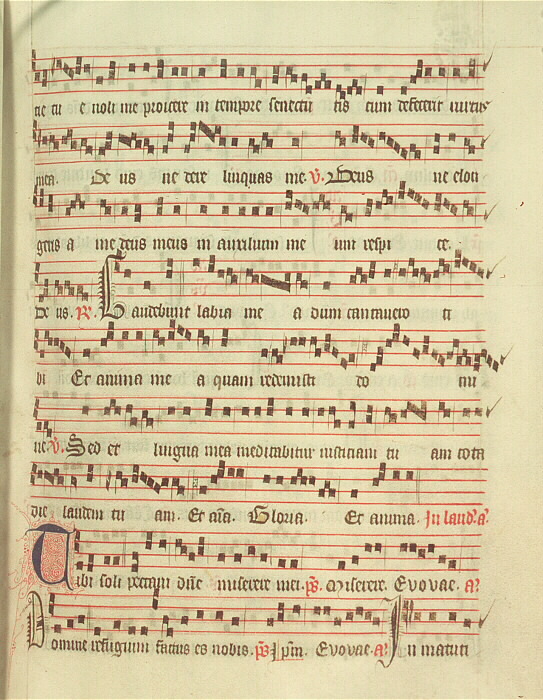 tie tu e noli me proicere in tempore senectu tis cum defecerit uirtus
mea. De us ne dere linquas me. V. Deus ne elon
geris a me deus meus in auxilium me um respi ce.
De us. R. Gaudebunt labia me a dum cantauero ti
bi Et anima me a quam redemisti do mi
ne. V. Sed et lingua mea meditabitur iusticiam tu am tota
die laudem tu am. Et aīa. Gloria. Et anima. In laud. a
Tibi soli peccaui dn̄e miserere mei. ps. Miserere. Evovae. a
Domine refugium factus es nobis. ps Ipm. Evovae. a In matuti